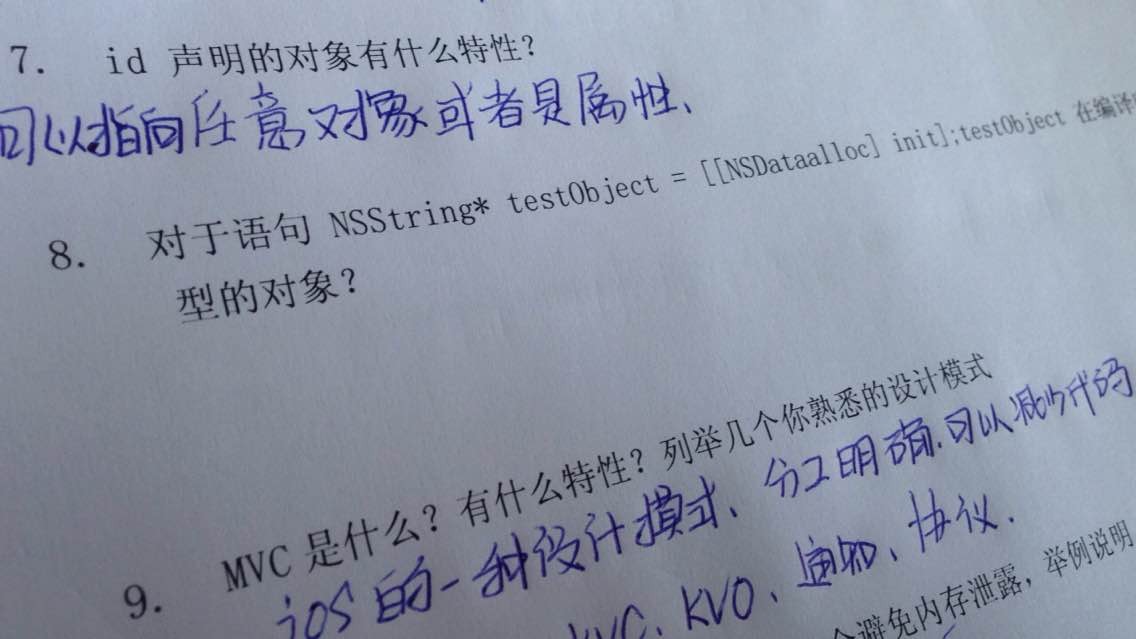 7. id 声明的对象有什么特性?
可以指向任意对象或者是属性、
8. 对于语句 NSString* testObject = [[NSDataalloc] init];testObject 在编译
型的对象?
9. MVC 是什么? 有什么特性? 列举几个你熟悉的设计模式
iOS 的一种设计模式、分工明确.可以减少代码
KVC、KVO、通知、协议.
会避免内存泄露,举例说明